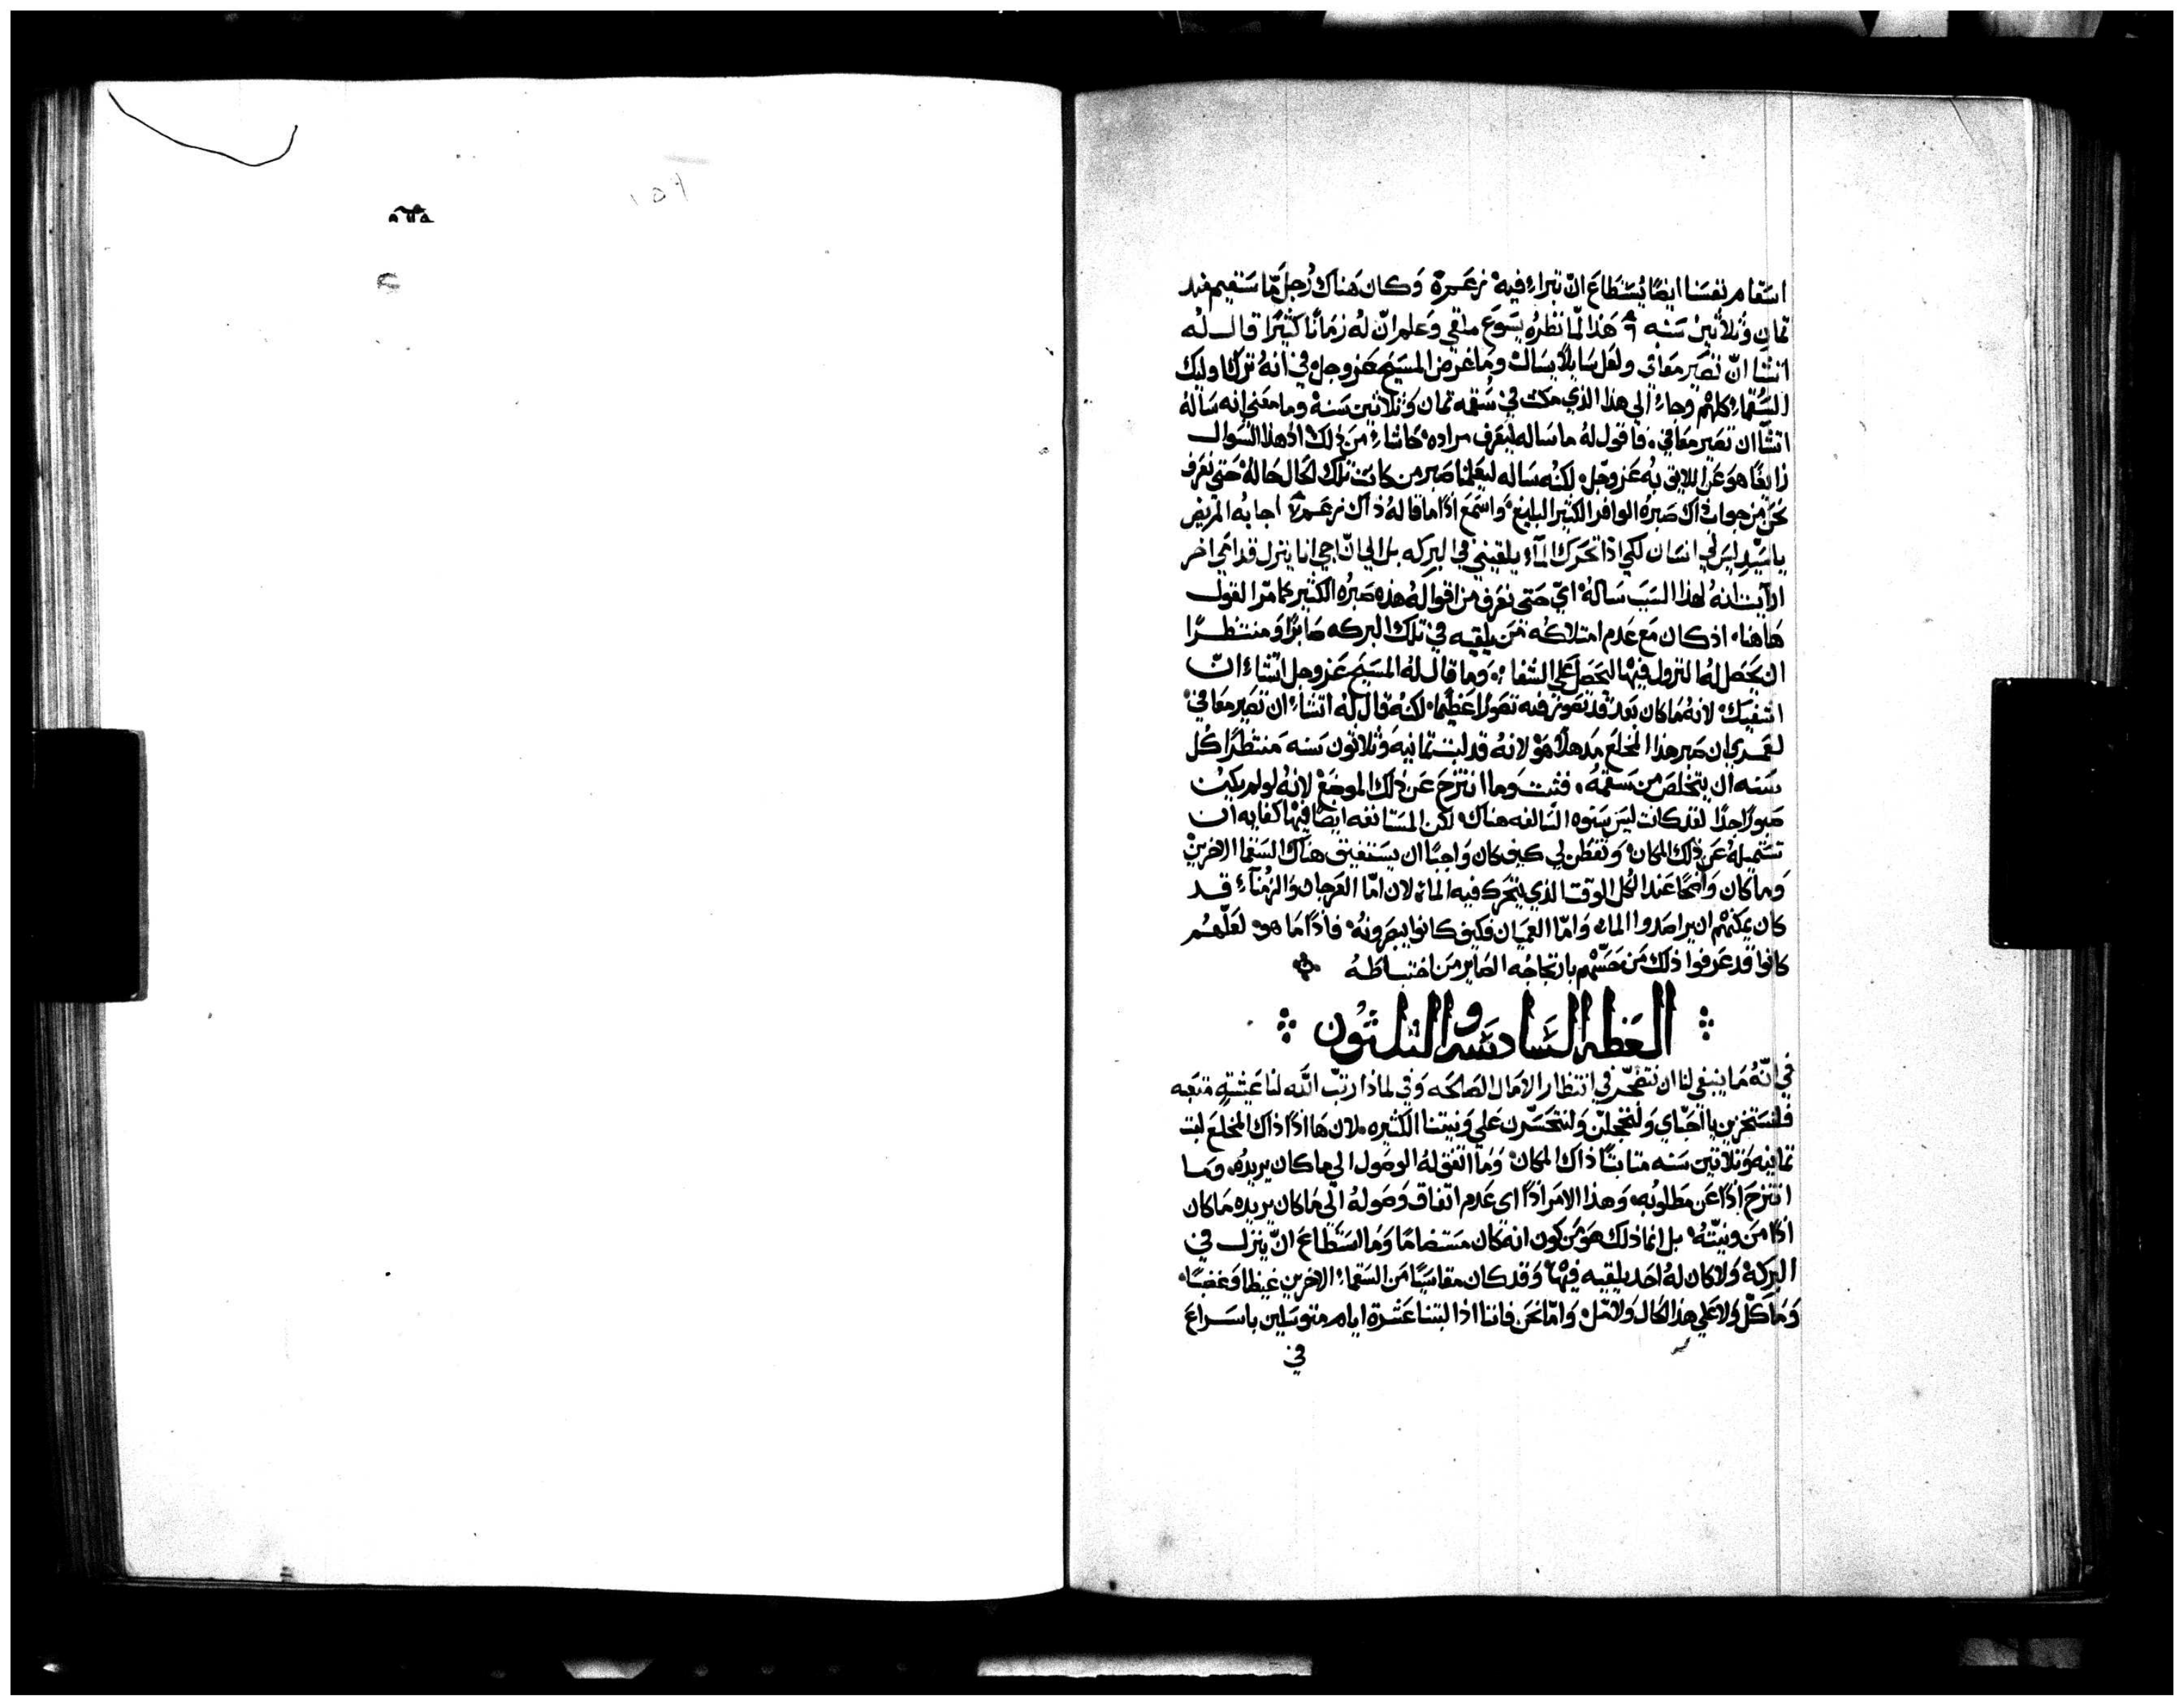 اسقام نفسنا ايضًا يُستطاع انّ تبراء فيه نرعمرة وكان هناك رُجل مّا سَقيم مند
تمان وثلاثين سَنه هذا لمّا نظرهُ يسَوع ملقي وعلم انّ لهُ زمانًا كثيرًا قال لهُ
اتشا انّ تصَير معافي ولعل سَايلاً يسَال وما غرض المسَيح عز وجل في انهُ ترك اوليك
السُقماء كلهم وجاء الي هذا الذي مكث في سُقمه تمان وثلاثين سَنة وما معني انه سَالهُ
اتشا ان تصَير معافي فاقول لهُ ما سَاله ليعرف مراده حاشاء من ذلك اذ هذا السَوال
زايغًا هو غير اللايق به عز وجل لكنهُ سَاله ليعلمنا صَبر من كانت تلك الحال حالهُ حتي نعرف
نحن من جواب ذاك صَبرهُ الوافر الكثير البليغ واسَمع اذًا ما قالهُ ذاك نرعمرة اجابه المريض
يا سَيد ليسَ لي انسان لكي اذا تحرك المآء يلقيني في البركه بل الي انّ اجي انا ينزل قدامي اخر
اراَيت انهُ لهذا السَبب سَالهُ اي حتي نعرف من اقوالهُ هذه صَبرُه الكثير كما مرّ القول
هاهنا اذ كان مع عدم امتلاكه من يلقيه في تلك البركه صَابرًا ومنتظرًا
ان يحَصل لهُ النزول فيها ليحَصل علي الشفاء وما قال لهُ المسَيح عز وجل اتشاء انّ
اشفيك لانهُ ما كان بعد قد تصَور فيه تصَورًا عظيمًا لكنهُ قال لهُ اتشاء ان تصَير معافي
لعمري ان صَبر هذا المخلع مدهلاً هو لانهُ قد لبت تمانيه وثلاثون سَنه منتظرًا كُل
سَنه ان يتخلصَ من سَقمهُ فثبت وما انتزح عن ذلك الموضع لانهُ لو لم يكن
صَبورًا جدًا لقد كانت ليسَ سَنوه السَالفه هناك لكن المسَتانفه ايضًا فيها كفايه ان
تسَتميلهُ عن ذلك المكان وتفطن لي كيف كان واجبًا ان يسَتفيق هناك السَقما الاخرين
وما كان واضحًا عند الكل الوقت الذي يتحرك فيه الماء لان امّا العرجان والزُمنآء قد
كان يمكنهم ان يراصَدوا الماء وامّا العميان فكيف كانوا يبصَرونهُ فاذًا ما هو لعلّهم
كانوا قد عرفوا ذلك من حسّهم بارتجاجه الصَاير من اختباطهُ
العَظه السَادسَه والتلتون
في انّهُ ما ينبغي لنا ان نتضجّر في انتظار الامال الصَالحه وفي لماذا رتبّ اللّه لنا عيشةٍ متعبه
فلنسَتخزين يا احبّاي ولنخجلنّ ولنتحسّرن علي ونيتنا الكثيره لان ها اذًا ذاك المخلع لبت
تمانيه وتلاتين سَنه متابتًا ذاك المكان وما اتفق لهُ الوصَول الي ما كان يريدُه وما
انتزح اذًا عن مطلوُبه وهذا الامر اذًا اي عدم اتفاق وصَولهُ الي ما كان يريده ما كان
اذًا من ونيتّهُ بل انما ذلك هو من كون انه كان مسَتضامًا وما اسَتطاع انّ ينزل في
البركة ولا كان لهُ احد يلقيه فيها وقد كان مقاسَيًا من السَقماء الاخرين غيظًا وغضبًا
وما كلّ ولا علي هذا الحال ولا ملّ وامّا نحن فاننا اذا لبتنا عشرة ايام متوسَلين باسَراع
في